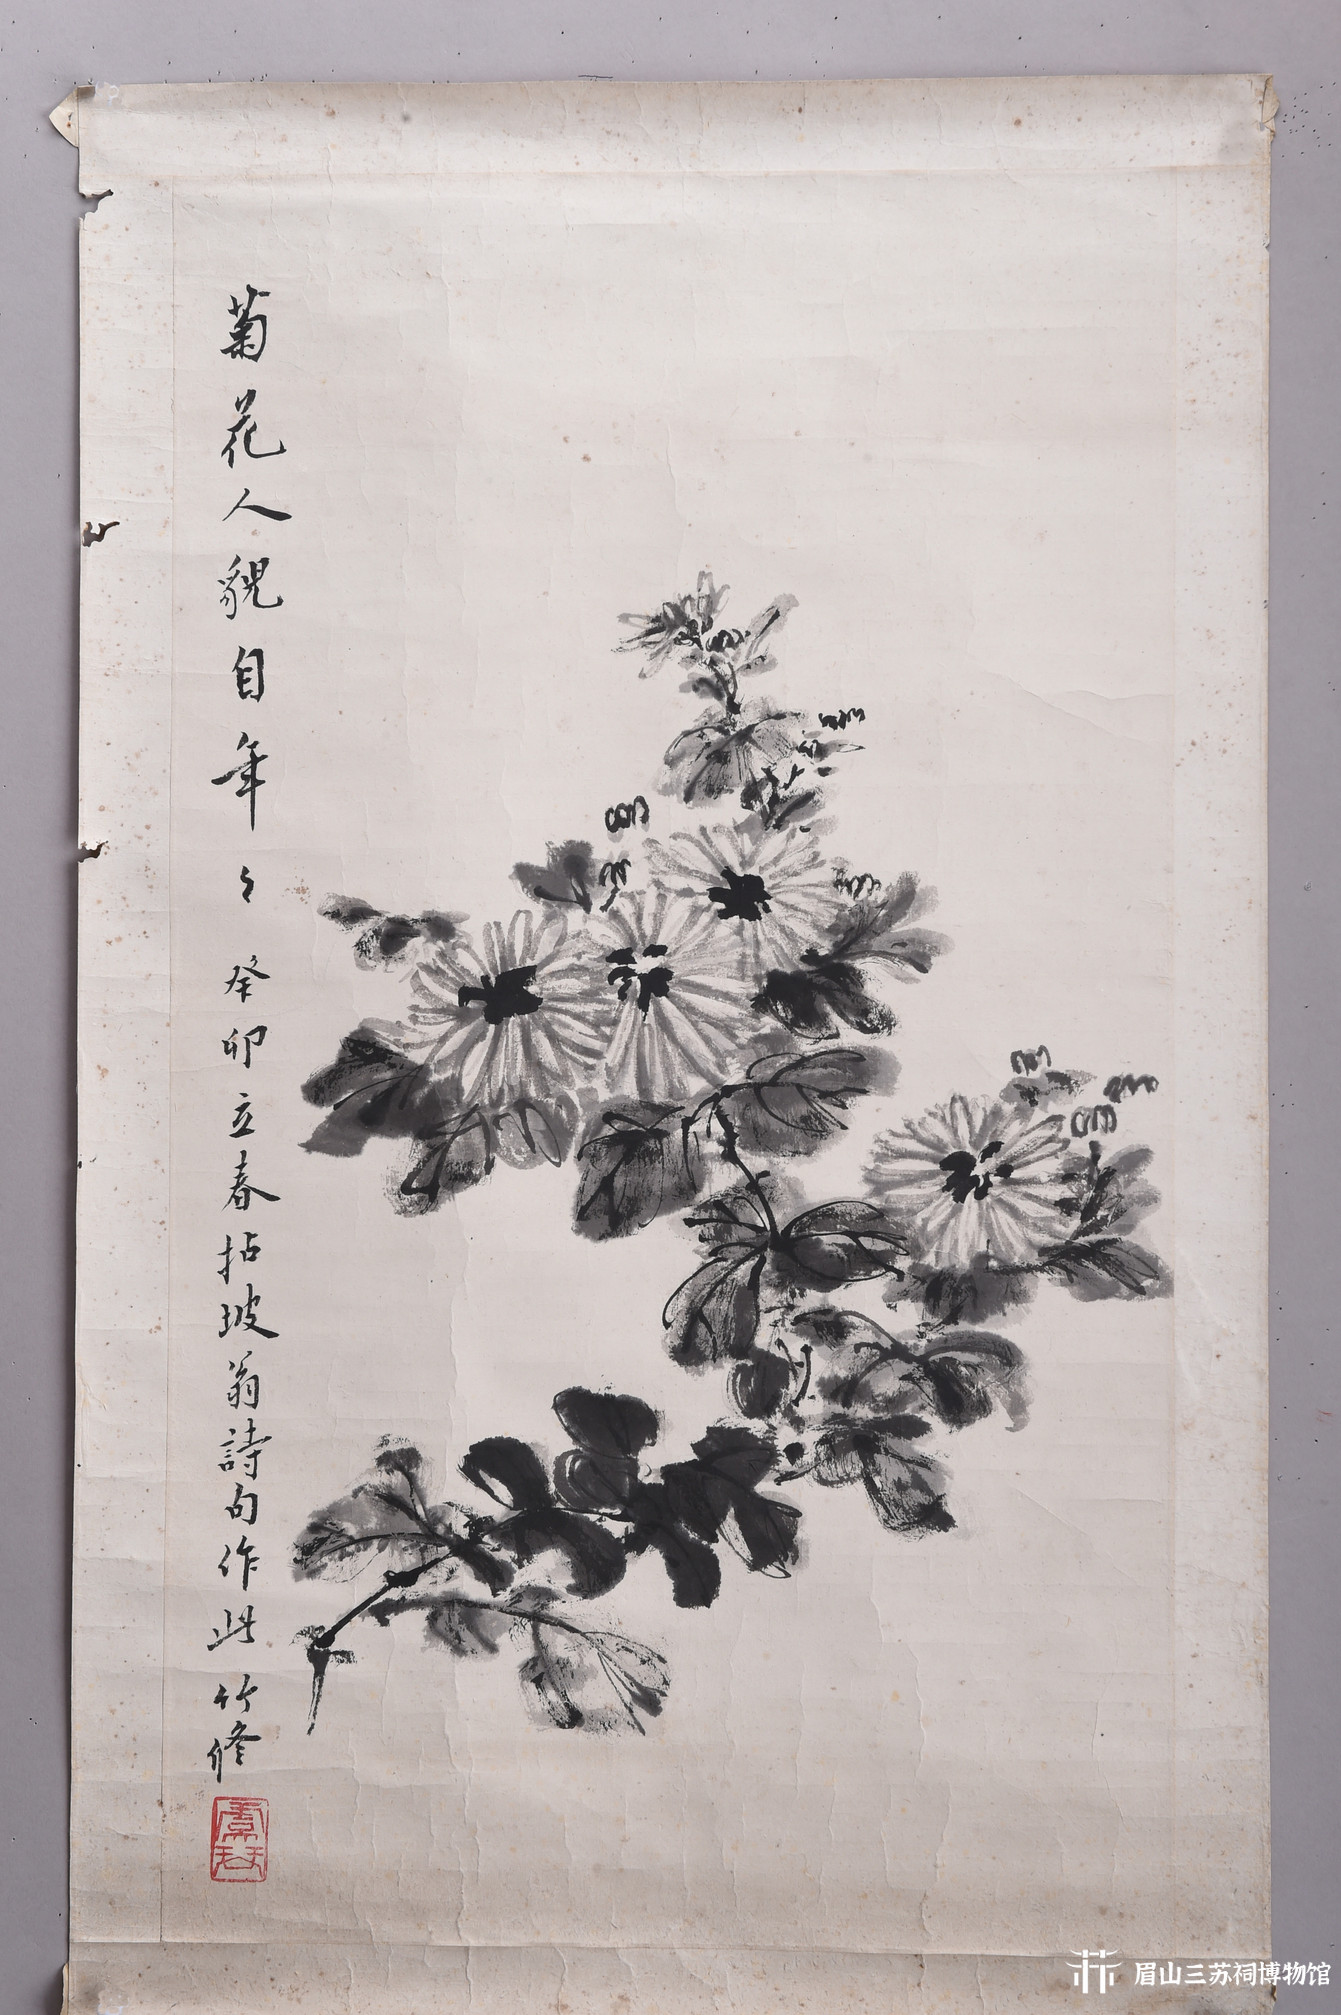 菊花人貌自年々癸卯立春拈坡翁詩句作此竹修
眉山三苏祠博物馆